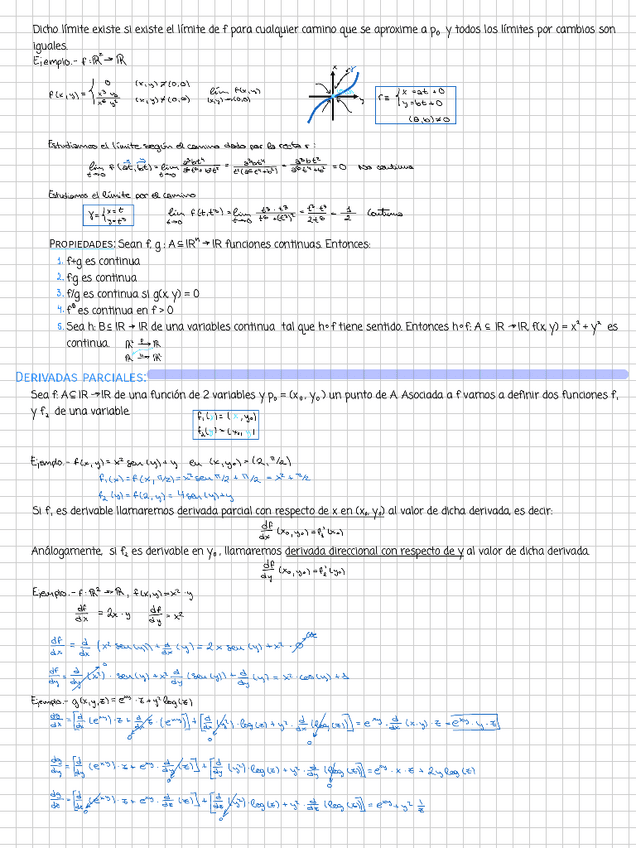 Dicho límite existe si existe el límite de f para cualquier camino que se aproxime a p₀ y todos los límites por cambios son
iguales.
Ejemplo.- f: ℝ² → ℝ
f(x,y) = { 0 (x,y)≠(0,0)
(x,y)≠(0,0) lím f(x,y) (x,y)→(0,0)
r ≡ { x = at + 0
y = bt + 0
(a,b) ≠ 0
Estudiamos el límite según el camino dado por la recta r:
lím f(at, bt) = lím = 0 No continua
Estudiamos el límite por el camino
γ = { x=t
y=t³
lím f(t,t³) = lím t³·t³ / t⁶+(t³)² = t³·t³ / 2t⁶ = 1/2 Continua
PROPIEDADES: Sean f, g: A ⊆ ℝⁿ → ℝ funciones continuas. Entonces:
1. f+g es continua
2. f·g es continua
3. f/g es continua si g(x, y) = 0
4. es continua en f > 0
5. Sea h: B ⊆ ℝ → ℝ de una variables continua tal que h∘f tiene sentido. Entonces h∘f: A ⊆ ℝ → ℝ, f(x, y) = x² + y² es
continua.
DERIVADAS PARCIALES:
Sea f: A⊆ℝ→ℝ de una función de 2 variables y p₀ = (x₀, y₀) un punto de A. Asociada a f vamos a definir dos funciones f₁
y f₂ de una variable
f₁( ) = ( , y₀)
f₂(y) = (x₀, y)
Ejemplo.- f(x,y) = x² sen(y) + y en (x₀,y₀) = (2, π/2)
f₁(x) = f(x, π/2) = x² sen π/2 + π/2 = x² + π/2
f₂(y) = f(2, y) = 4 sen(y) + y
Si f₁ es derivable llamaremos derivada parcial con respecto de x en (x₀, y₀) al valor de dicha derivada, es decir:
df/dx (x₀, y₀) = f₁'(x₀)
Análogamente, si f₂ es derivable en y₀, llamaremos derivada direccional con respecto de y al valor de dicha derivada.
df/dy (x₀, y₀) = f₂'(y₀)
Ejemplo.- f: ℝ² → ℝ, f(x,y) = x²·y
df/dx = 2x·y df/dy = x²
df/dx = d/dx (x² sen(y)) + d/dx (y) = 2x sen(y) + x² · 0
df/dy = d/dy (x²) · sen(y) + x² d/dy (sen(y)) + d/dy (y) = x² · cos(y) + 1
Ejemplo.- g(x,y,z) = e^xy · z + y² log(z)
dg/dx = [d/dx (e^xy) · z + d/dx z · (e^xy)] + [d/dx (y²) · log(z) + y² · d/dx (log(z))] = e^xy · d/dx (x·y) · z = e^xy · y · z
dg/dy = [d/dy (e^xy) · z + e^xy · d/dy (z)] + [d/dy (y²) · log(z) + y² · d/dy (log(z))] = e^xy · x · z + 2y log(z)
dg/dz = [d/dz (e^xy) · z + e^xy · d/dz (z)] + [d/dz (y²) · log(z) + y² · d/dz (log(z))] = e^xy + y² 1/z